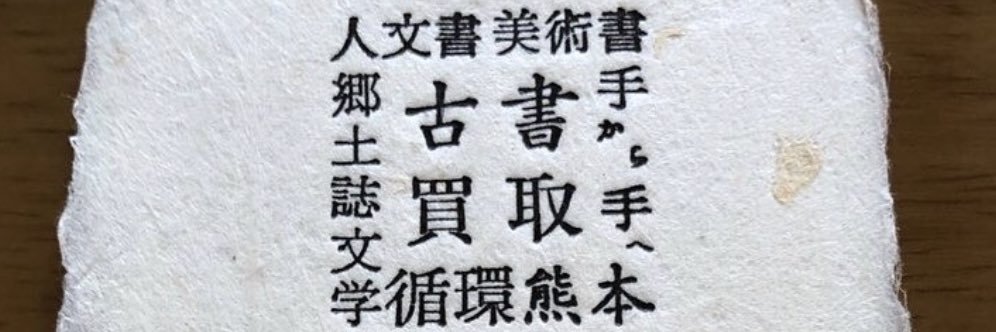 人文書美術書
郷土誌文学
古書
買取
手から手へ
循環熊本